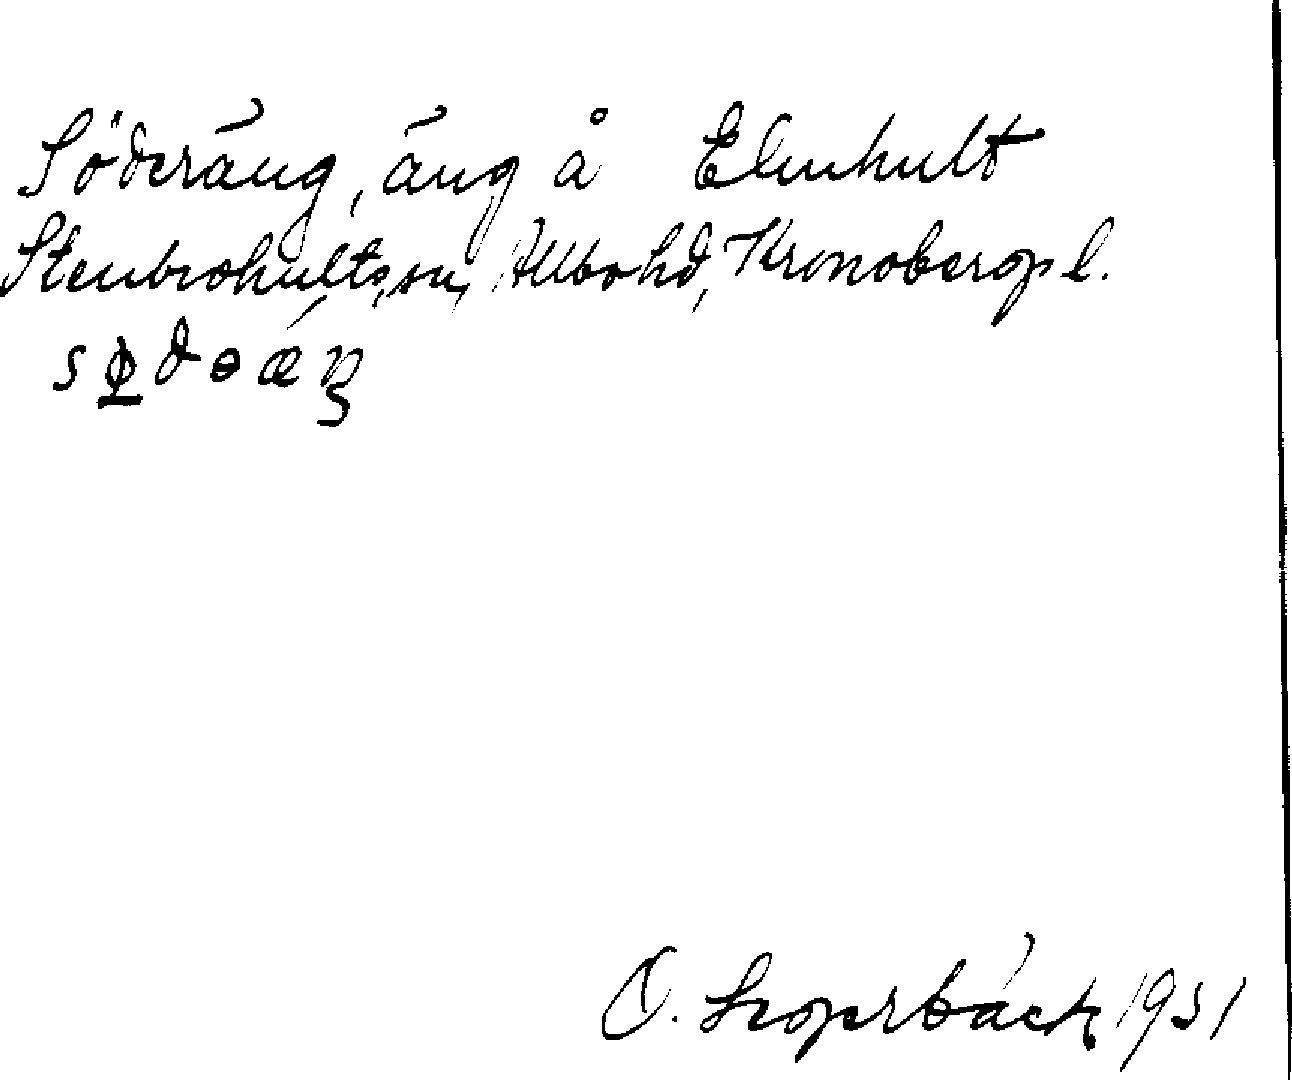 Söderäng, äng å Elmhult
Stenbrohults sn, Allbo hd, Kronobergs l.
sφ̲dɵæŋ
O. Lagerbäck 1931